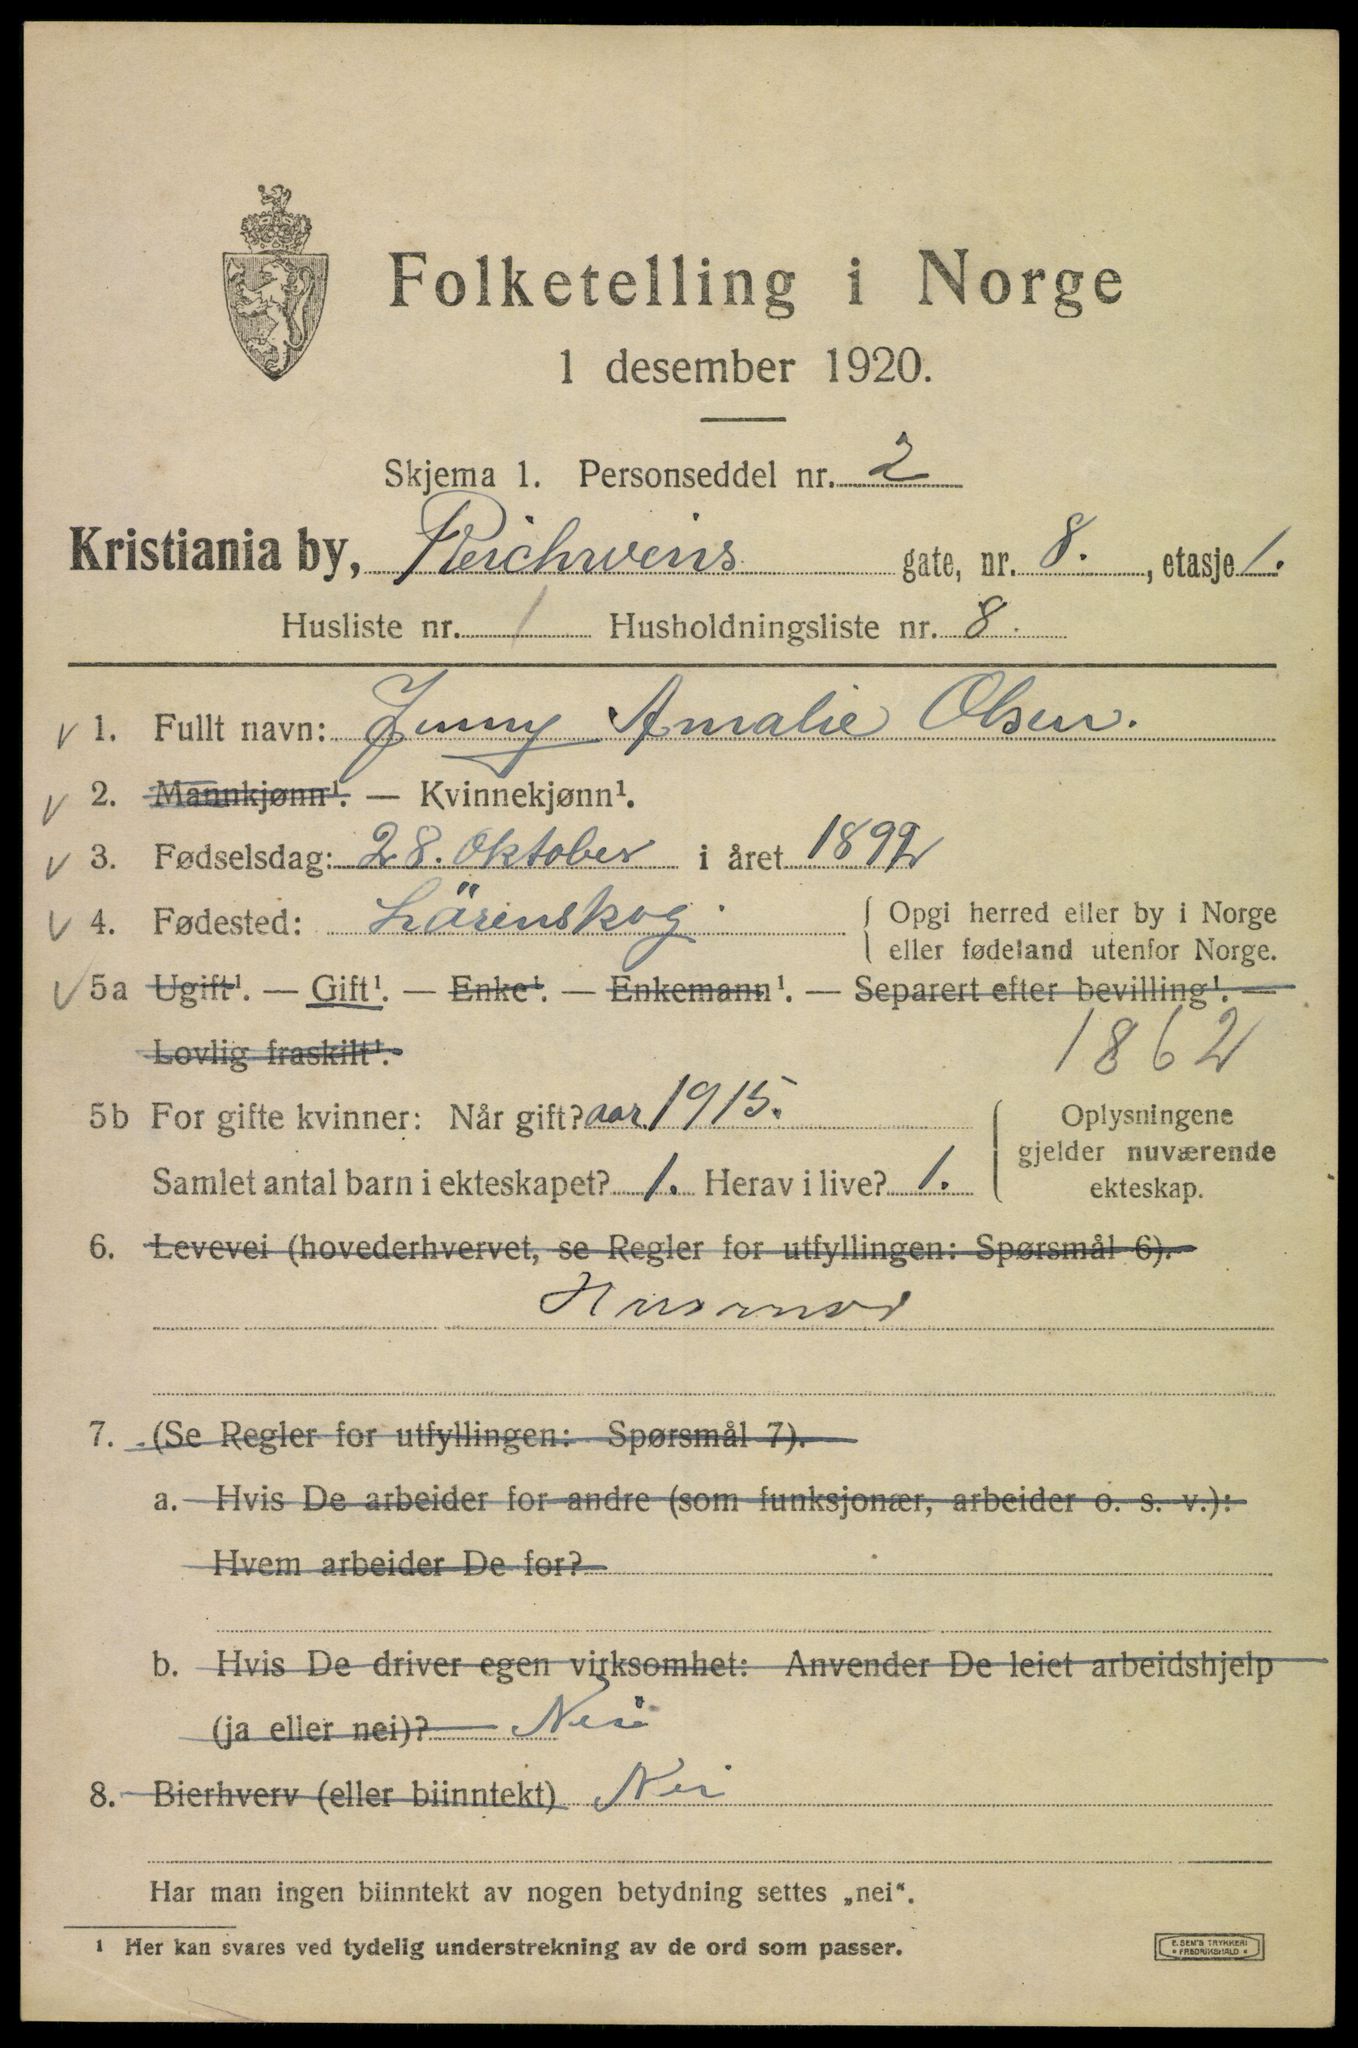 Folketelling i Norge
1 desember 1920.
Skjema 1. Personseddel nr. 2
Kristiania by, Reichweins gate, nr. 8. , etasje 1.
Husliste nr. 1 Husholdningsliste nr. 8.
1. Fullt navn: Jenny Amalie Olsen.
2. Mannkjønn¹. — Kvinnekjønn¹.
3. Fødselsdag: 28. Oktober i året 1892
4. Fødested: Lörenskog. Opgi herred eller by i Norge
eller fødeland utenfor Norge.
5a Ugift¹. — Gift¹. — Enke¹. — Enkemann¹. — Separert efter bevilling¹. —
Lovlig fraskilt¹. 1862
5b For gifte kvinner: Når gift? aar 1915. Oplysningene
gjelder nuværende
Samlet antal barn i ekteskapet? 1. Herav i live? 1. ekteskap.
6. Levevei (hovederhvervet, se Regler for utfyllingen: Spørsmål 6).
Husmod
7. (Se Regler for utfyllingen: Spørsmål 7).
a. Hvis De arbeider for andre (som funksjonær, arbeider o. s. v.):
Hvem arbeider De for?
b. Hvis De driver egen virksomhet: Anvender De leiet arbeidshjelp
(ja eller nei)? Nei
8. Bierhverv (eller biinntekt) Nei
Har man ingen biinntekt av nogen betydning settes „nei“.
¹ Her kan svares ved tydelig understrekning av de ord som passer.
E. SEM'S TRYKKERI
FREDRIKSHALD